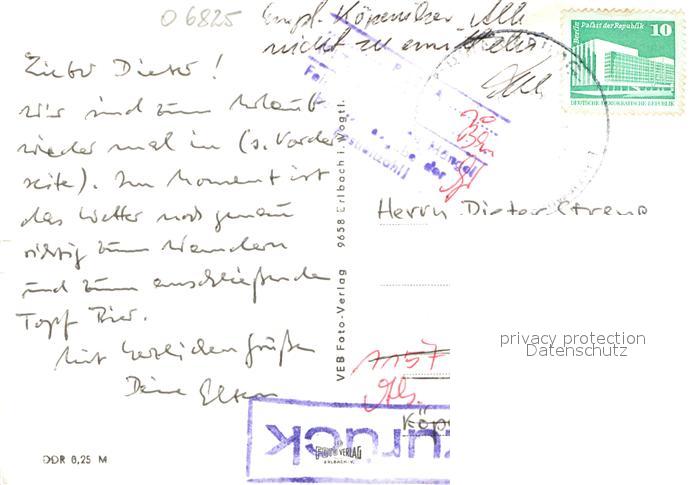 06825
Empf. Köpenicker Alle
nicht zu ermitteln
Berlin Palast der Republik 10
DEUTSCHE DEMOKRATISCHE REPUBLIK
Lieber Dieter!
Wir sind zum Urlaub
wieder mal in (s. Vorder
seite). Im Moment ist
das Wetter noch genau
richtig zum Wandern
und zum anschließenden
Topf Bier.
Mit herzlichen Grüßen
Deine Eltern
VEB Foto-Verlag 9658 Erlbach i. Vogtl.
Herrn Dieter
1157
Köp
privacy protection
Datenschutz
zurück
FOTO VERLAG
ERLBACH V.
DDR 8,25 M